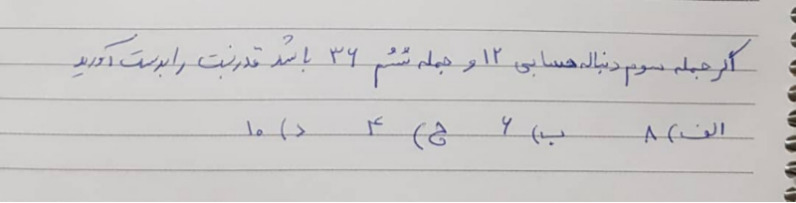 اگر جمله سوم دنباله حسابی ۱۲ و جمله ششم ۳۶ باشد قدرنسبت را بدست آورید
الف) ۸ ب) ۶ ج) ۴ د) ۱۰